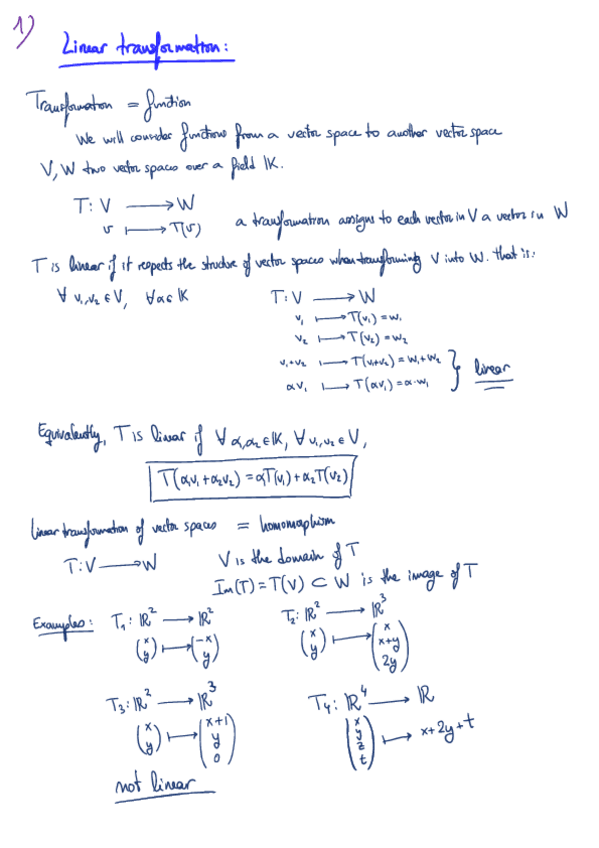 1)
Linear transformation:
Transformation = function
We will consider functions from a vector space to another vector space
V, W two vector spaces over a field K.
T: V ⟶ W
v ⟼ T(v) a transformation assigns to each vector in V a vector in W
T is linear if it respects the structure of vector spaces when transforming V into W. that is:
∀ v₁,v₂ ∈ V, ∀α∈ K T: V ⟶ W
v₁ ⟼ T(v₁) = w₁
v₂ ⟼ T(v₂) = w₂
v₁+v₂ ⟼ T(v₁+v₂) = w₁+w₂
αv₁ ⟼ T(αv₁) = α·w₁ } linear
Equivalently, T is linear if ∀ α₁,α₂ ∈ K, ∀ v₁,v₂ ∈ V,
T(α₁v₁ + α₂v₂) = α₁T(v₁) + α₂T(v₂)
linear transformation of vector spaces = homomorphism
T: V ⟶ W V is the domain of T
Im(T) = T(V) ⊂ W is the image of T
Examples: T₁: ℝ² ⟶ ℝ² T₂: ℝ² ⟶ ℝ³
(x y) ⟼ (-x y) (x y) ⟼ (x x+y 2y)
T₃: ℝ² ⟶ ℝ³ T₄: ℝ⁴ ⟶ ℝ
(x y) ⟼ (x+1 y 0) (x y z t) ⟼ x+2y+t
not linear